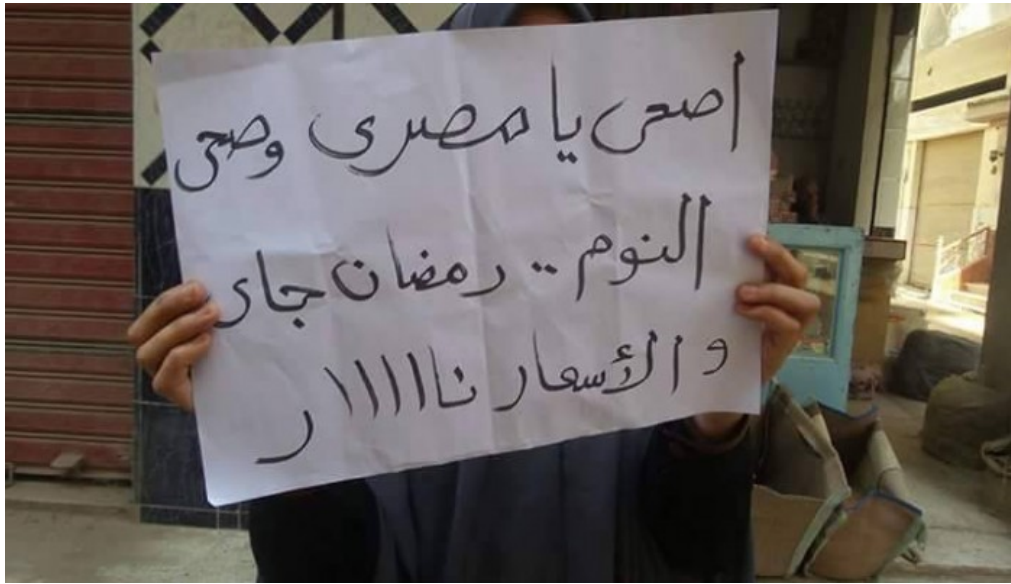 اصحى يا مصرى وصحى
النوم .. رمضان جاى
و الأسعار نااااار